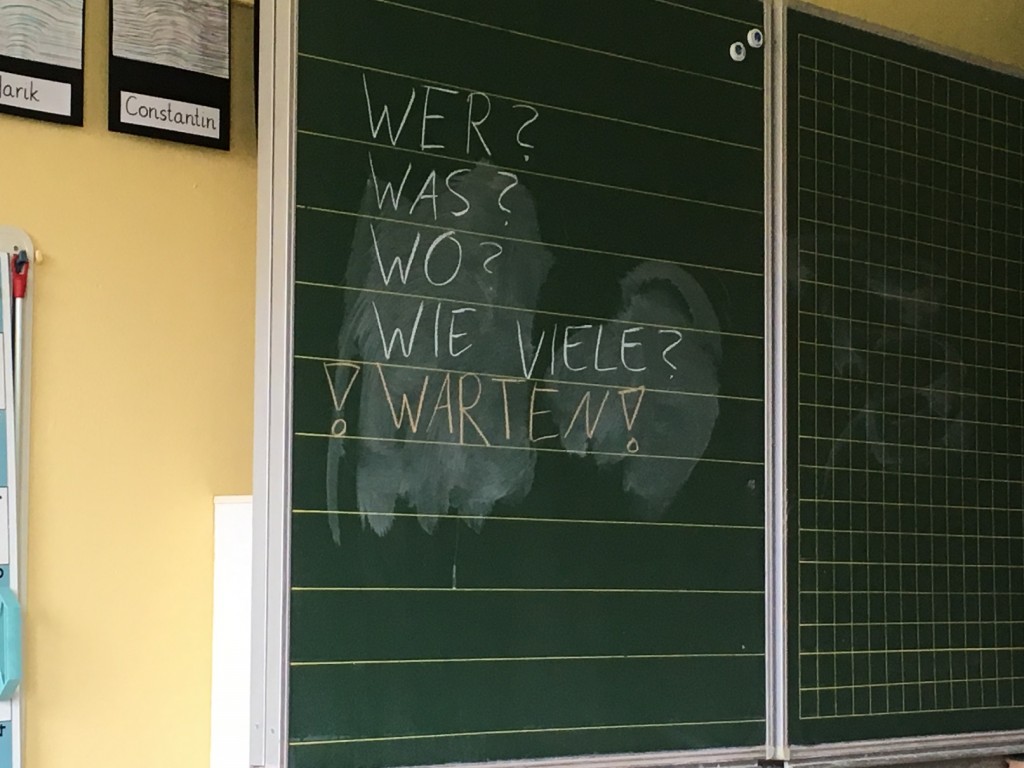 Constantin
WER?
WAS?
WO?
WIE VIELE?
! WARTEN!